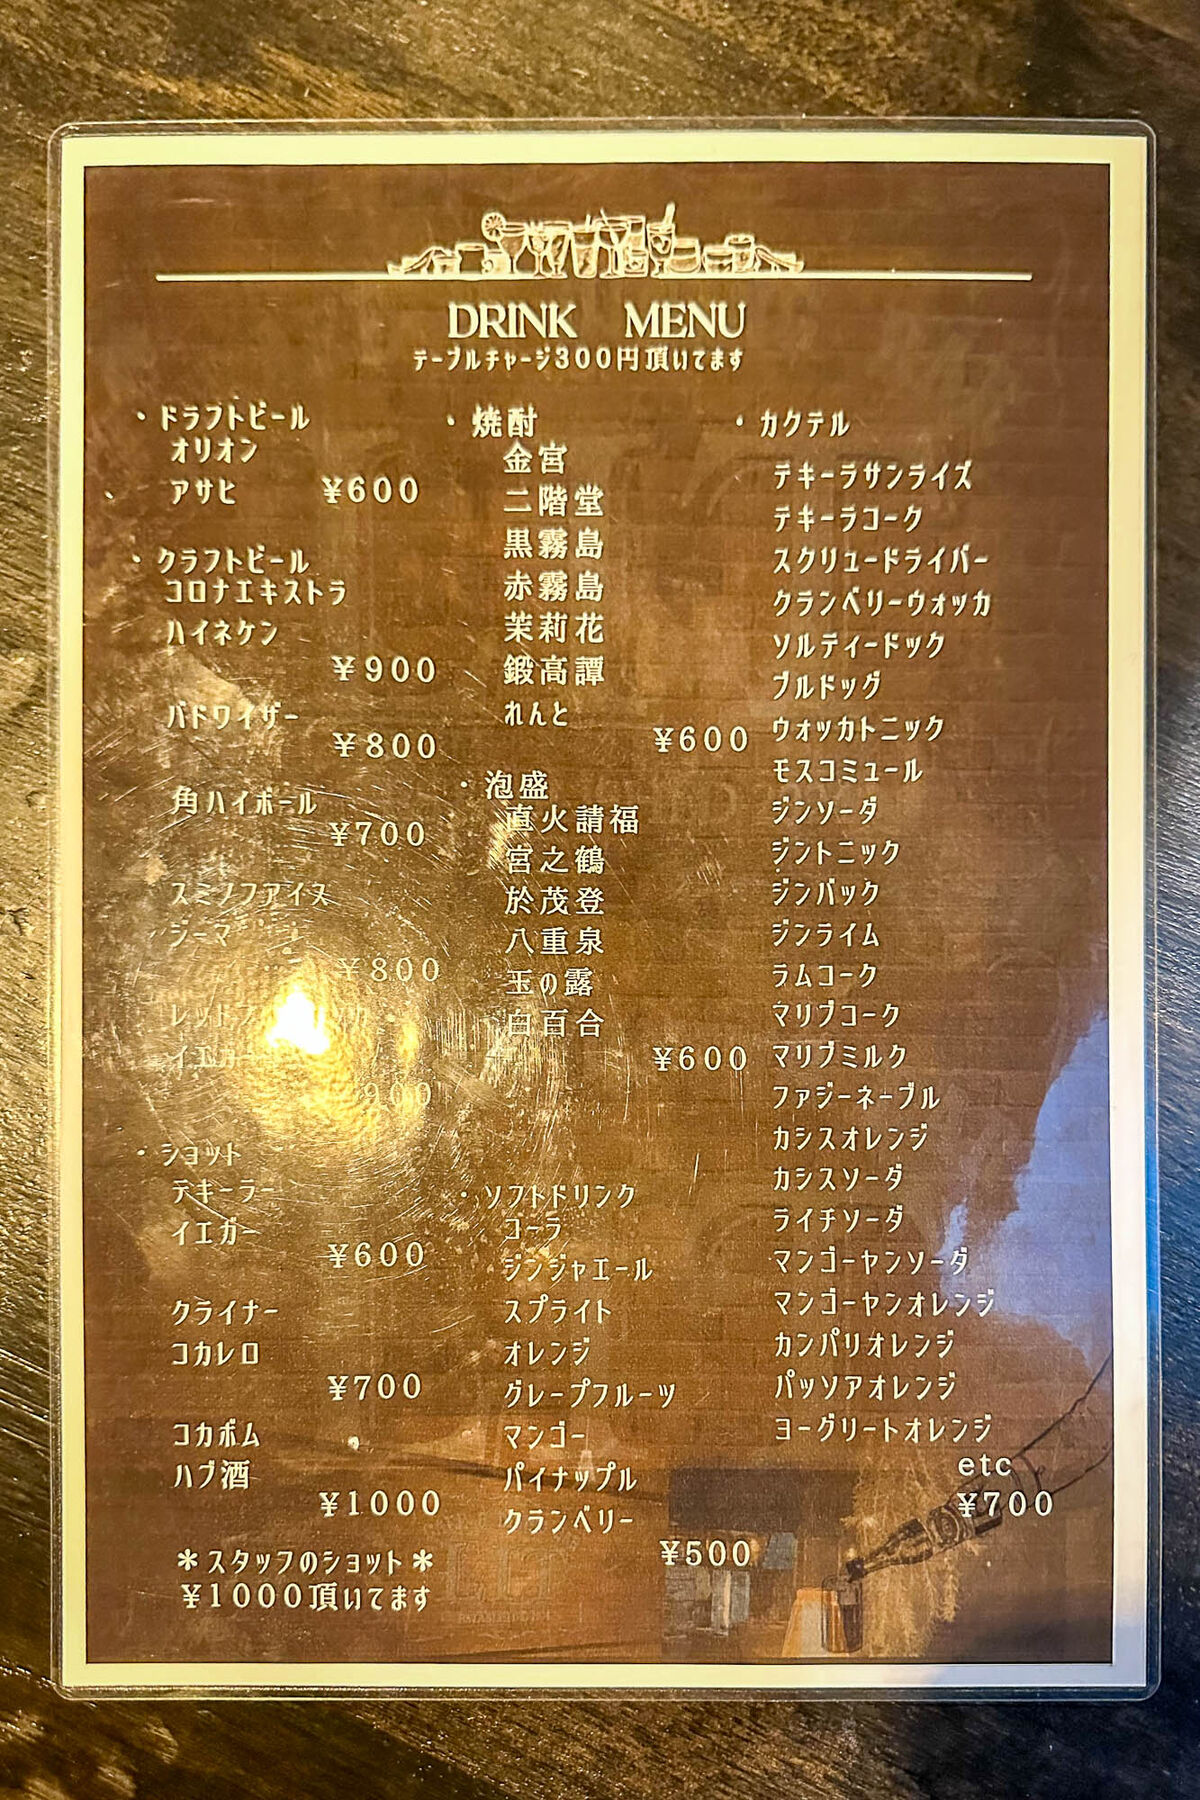 DRINK MENU
テーブルチャージ300円頂いてます
・ドラフトビール
オリオン
アサヒ ¥600
・クラフトビール
コロナエキストラ
ハイネケン
¥900
バドワイザー
¥800
角ハイボール
¥700
スミノフアイス
ジーマ
¥800
イエガー
¥900
・ショット
テキーラー
イエガー
¥600
クライナー
コカレロ
¥700
コカボム
ハブ酒
¥1000
＊スタッフのショット＊
¥1000頂いてます
・焼酎
金宮
二階堂
黒霧島
赤霧島
茉莉花
鍛高譚
れんと
¥600
・泡盛
直火請福
宮之鶴
於茂登
八重泉
玉の露
白百合
¥600
・ソフトドリンク
コーラ
ジンジャエール
スプライト
オレンジ
グレープフルーツ
マンゴー
パイナップル
クランベリー
¥500
・カクテル
テキーラサンライズ
テキーラコーク
スクリュードライバー
クランベリーウォッカ
ソルティードック
ブルドッグ
ウォッカトニック
モスコミュール
ジンソーダ
ジントニック
ジンバック
ジンライム
ラムコーク
マリブコーク
マリブミルク
ファジーネーブル
カシスオレンジ
カシスソーダ
ライチソーダ
マンゴーヤンソーダ
マンゴーヤンオレンジ
カンパリオレンジ
パッソアオレンジ
ヨーグリートオレンジ
etc
¥700